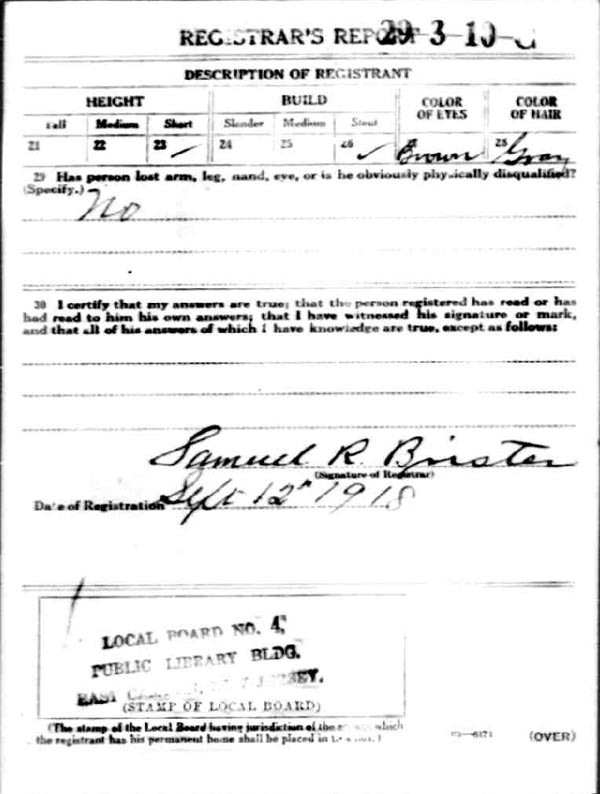 REGISTRAR'S REPORT 29-3-10-C
DESCRIPTION OF REGISTRANT
HEIGHT BUILD COLOR OF EYES COLOR OF HAIR
Tall Medium Short Slender Medium Stout
21 22 23 ✓ 24 25 26 ✓ Brown 28 Gray
29 Has person lost arm, leg, hand, eye, or is he obviously physically disqualified?
(Specify.) No
30 I certify that my answers are true; that the person registered has read or has
had read to him his own answers; that I have witnessed his signature or mark,
and that all of his answers of which I have knowledge are true, except as follows:
Samuel R. Brister
(Signature of Registrar)
Date of Registration Sept 12th 1918
LOCAL BOARD NO. 4,
PUBLIC LIBRARY BLDG.
EAST JERSEY.
(STAMP OF LOCAL BOARD)
(The stamp of the Local Board having jurisdiction of the area in which
the registrant has his permanent home shall be placed in this box.)
03—6171 (OVER)